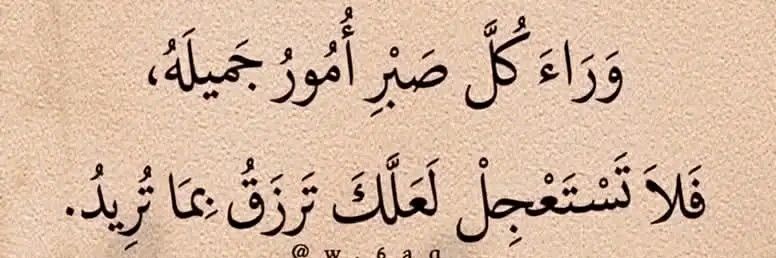 وَرَاءَ كُلَّ صَبْرِ أُمُورُ جَمِيلَهُ،
فَلاَ تَسْتَعْجِلْ لَعَلَّكَ تَرزَقُ بِمَا تُرِيدُ.